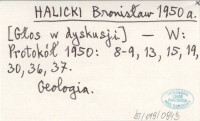 HALICKI Bronisław 1950 a.
[Głos w dyskusji] — W:
Protokół 1950: 8-9, 13, 15, 19,
30, 36, 37.
Geologia.